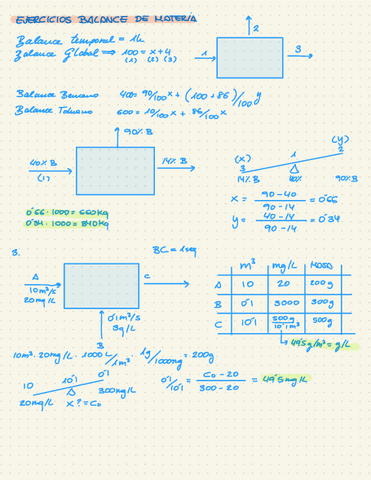 EJERCICIOS BALANCE DE MATERIA
Balance temporal = 1h
Balance Global ⟹ 100 = x + y
(1) (2) (3)
1
2
3
Balance Benceno 400 = 90/100 x + (100+86)/100 y
Balance Tolueno 600 = 10/100 x + 86/100 x
90% B
40% B
(1)
14% B
0'66 · 1000 = 660 kg
0'34 · 1000 = 340 kg
(x)
3
1
(y)
2
14% B
40%
90% B
x = 90-40 / 90-14 = 0'66
y = 40-14 / 90-14 = 0'34
3.
BC = 1 seg
A
10 m³/s
20 mg/L
C
0'1 m³/s
3 g/L
B
m³ mg/L MASA
A 10 20 200g
B 0'1 3000 300g
C 10'1 500g / 10'1 m³ 500g
↳ 49'5 g/m³ = g/L
10 m³ · 20 mg/L · 1000 L / 1 m³ · 1g / 1000mg = 200g
10
10'1
0'1
20 mg/L
x? = C₀
300 mg/L
0'1 / 10'1 = C₀ - 20 / 300 - 20 = 49'5 mg/L